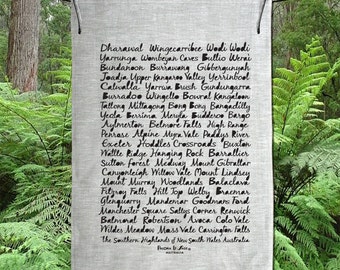 Dharawal Wingecarribee Wodi Wodi
Marrunga Wombeyan Caves Bullio Werai
Bundanoon Burrawang Gibbergunyah
Joadja Upper Kangaroo Valley Merrinbool
Catwalla Yarrwa Brush Gundungarra
Burradoo Wingello Bowral Kangaloon
Tallong Mittagong Bong Bong Bangadilly
Yeola Berrima Meryla Budderoo Bargo
Aylmerton Belmore Falls High Range
Penrose Alpine Myra Vale Paddys River
Exeter Hoddles Crossroads Buxton
Wattle Ridge Hanging Rock Barrallier
Sutton Forest Medway Mount Gibraltar
Canyonleigh Wilton Mount Lindsey
Mount Murray Woodlands Balaclava
Fitzroy Falls Hill Top Welby Braemar
Glenquarry Mandemar Goodmans Ford
Manchester Square Sallys Corner Renwick
Balmoral Robertson Avoca Colo Vale
Wildes Meadow Moss Vale Carrington Falls
The Southern Highlands of New South Wales Australia